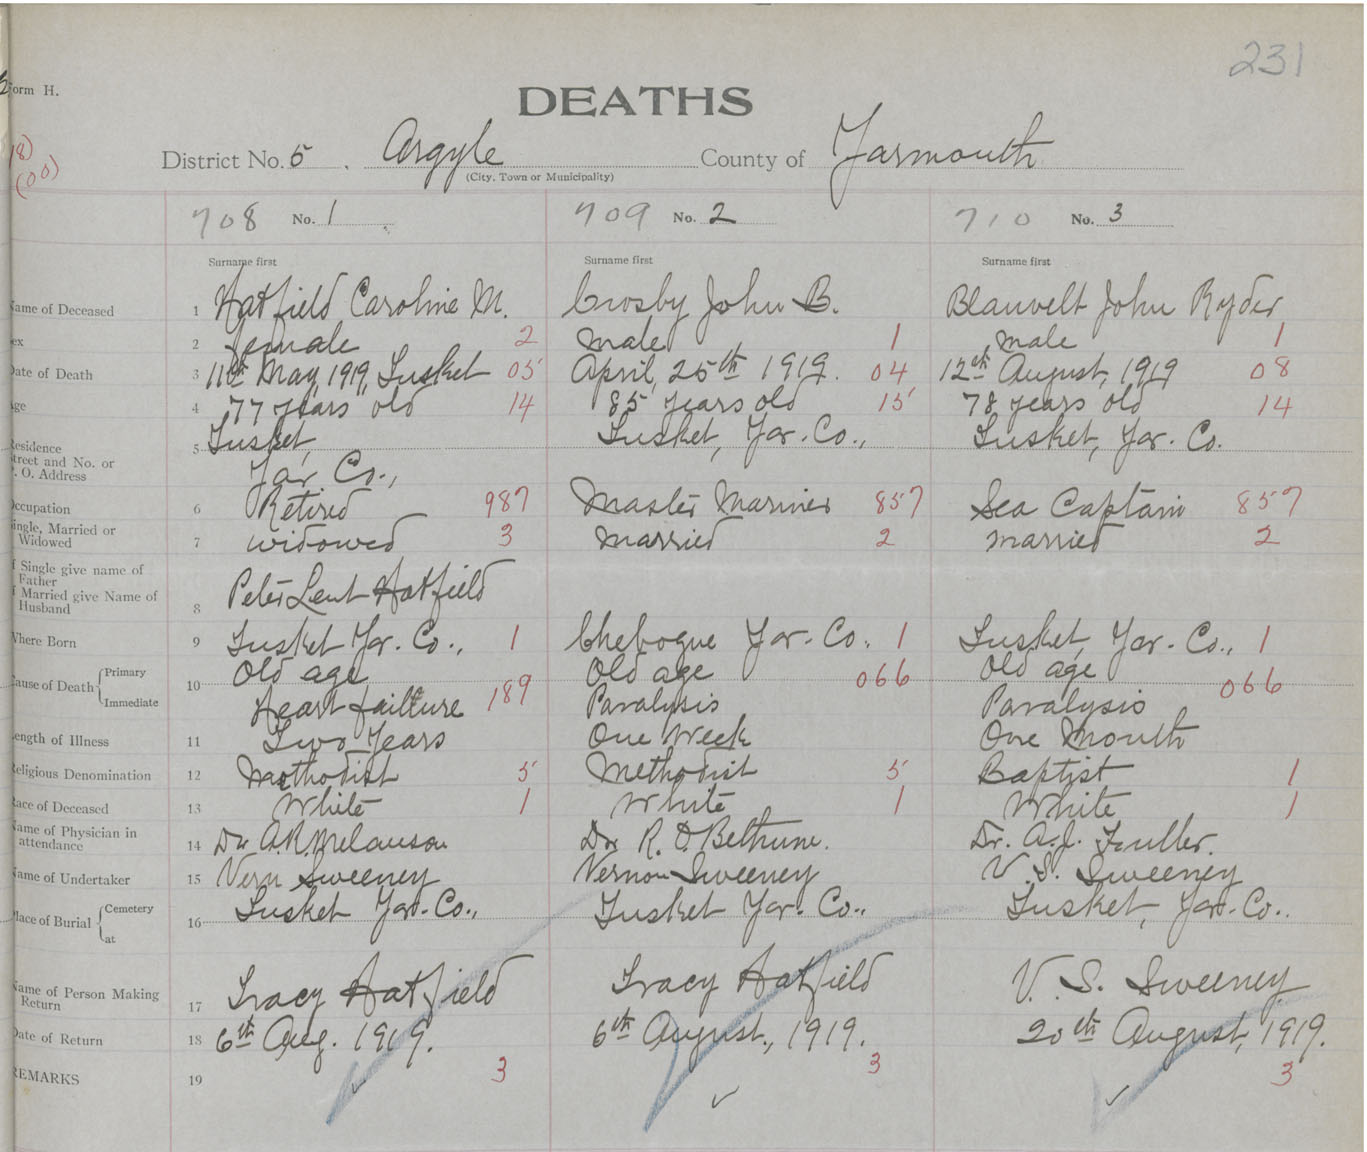 231
Form H.
DEATHS
District No. 5. Argyle County of Yarmouth
(City, Town or Municipality)
708 No. 1 709 No. 2 710 No. 3
Surname first Surname first Surname first
Name of Deceased 1 Hatfield Caroline M. Crosby John B. Blauvelt John Ryder
Sex 2 female 2 male 1 male 1
Date of Death 3 11th May 1919, Tusket 05 April, 25th 1919. 04 12th August, 1919 08
Age 4 77 years old 14 85 years old 15 78 years old 14
Residence 5 Tusket, Tusket, Yar. Co., Tusket, Yar. Co.
Street and No. or
P. O. Address Yar. Co.,
Occupation 6 Retired 987 Master Mariner 857 Sea Captain 857
Single, Married or
Widowed 7 widowed 3 married 2 married 2
If Single give name of
Father
If Married give Name of
Husband 8 Peter Lent Hatfield
Where Born 9 Tusket Yar. Co., 1 Chebogue Yar. Co. 1 Tusket, Yar. Co., 1
Cause of Death Primary 10 Old age Old age 066 Old age 066
Immediate Heart failture 189 Paralysis Paralysis
Length of Illness 11 Two Years One Week One Month
Religious Denomination 12 Methodist 5 Methodist 5 Baptist 1
Race of Deceased 13 White 1 White 1 White 1
Name of Physician in
attendance 14 Dr. A.R. Melanson Dr R. O Bethune. Dr. A.J. Fuller.
Name of Undertaker 15 Vern Sweeney Vernon Sweeney V. S. Sweeney
Place of Burial Cemetery 16 Tusket Yar. Co., Tusket Yar. Co., Tusket, Yar. Co..
at
Name of Person Making
Return 17 Tracy Hatfield Tracy Hatfield V. S. Sweeney
Date of Return 18 6th Aug. 1919. 6th August, 1919. 20th August, 1919.
REMARKS 19 3 3 3